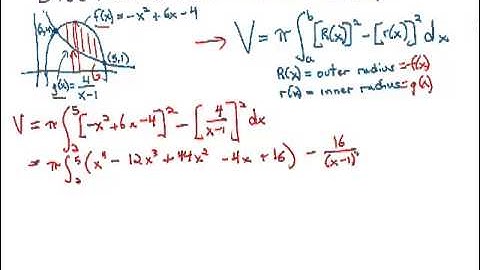 f(x) = -x² + 6x - 4
(2,4)
(5,1)
g(x) = 4/(x-1)
→ V = π ∫_a^b [R(x)]² - [r(x)]² dx
R(x) = outer radius = f(x)
r(x) = inner radius = g(x)
V = π ∫_2^5 [-x² + 6x - 4]² - [4/(x-1)]² dx
= π ∫_2^5 (x⁴ - 12x³ + 44x² - 4x + 16) - 16/(x-1)²